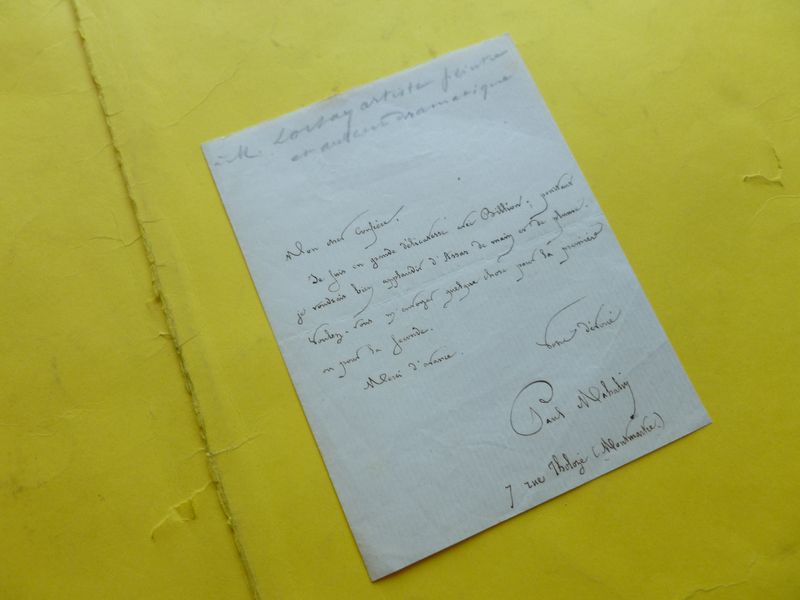 à M. Lorsay artiste peintre
et auteur dramatique
Mon cher Confrère,
Je suis en grande délicatesse avec Billion ; pourtant
je voudrais bien applaudir d'Assas de main et de plume.
Voulez-vous m'envoyer quelque chose pour la première
ou pour la seconde.
Merci d'avance.
Votre dévoué
Paul Mahalin
7 rue Tholozé (Montmartre.)